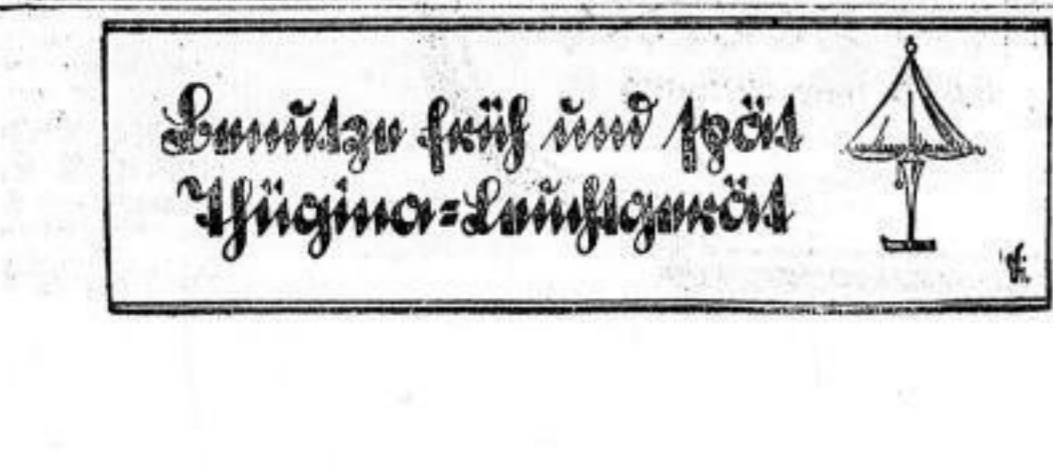 Benutze früh und spät
Thügina=Leuchtgerät